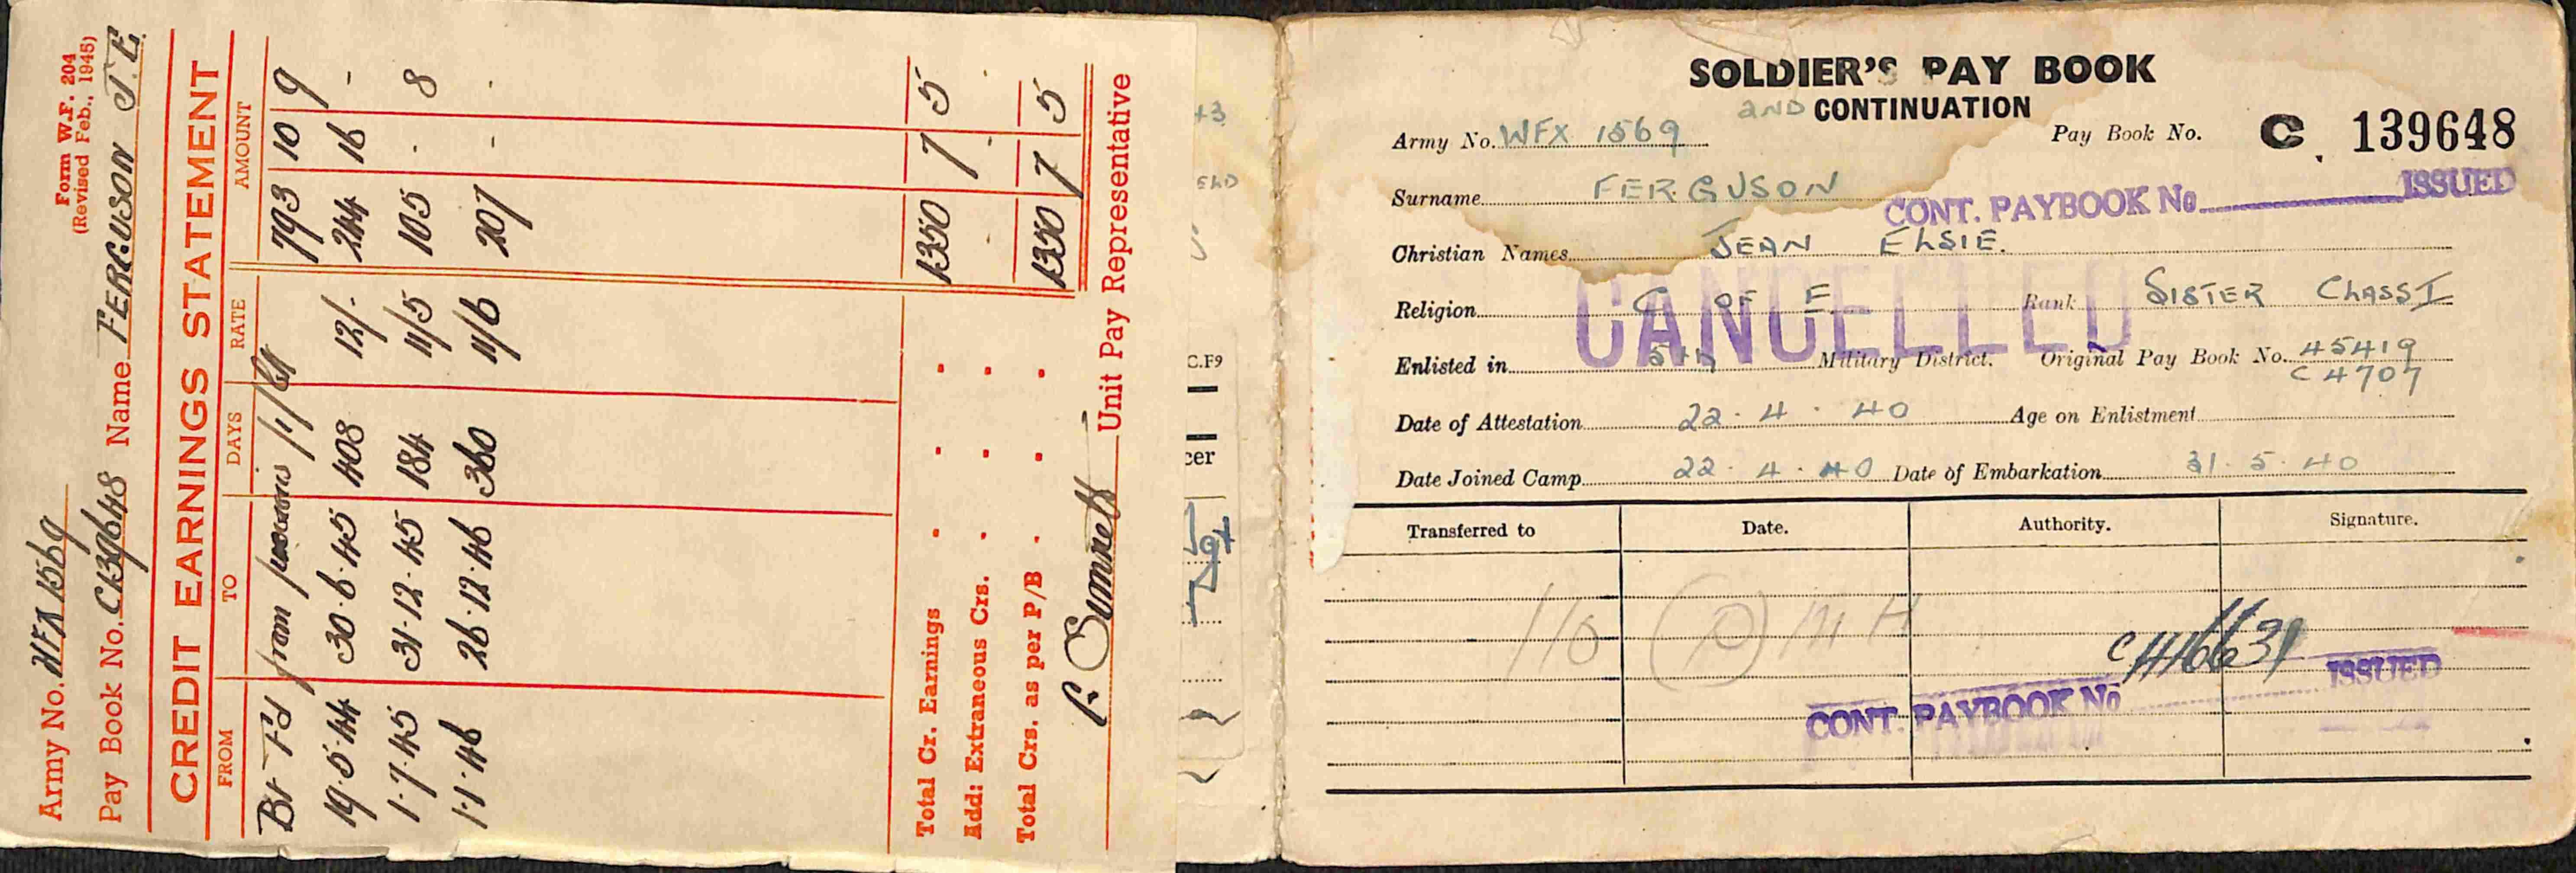 Form W.F. 204
(Revised Feb., 1945)
Army No. WFX 1569
Pay Book No. C139648 Name FERGUSON J.E.
CREDIT EARNINGS STATEMENT
FROM TO DAYS RATE AMOUNT
Bt Fd from 793 10 9
19.5.44 30.6.45 408 12/- 244 16 -
1.7.45 31.12.45 184 11/5 105 - 8
1.1.46 26.12.46 360 11/6 207 - -
Total Cr. Earnings 1350 7 5
Add: Extraneous Crs.
Total Crs. as per P/B 1350 7 5
Unit Pay Representative
C.F9
cer
SOLDIER'S PAY BOOK
2ND CONTINUATION
Army No. WFX 1569 Pay Book No. C 139648
Surname FERGUSON
CONT. PAYBOOK No ISSUED
Christian Names JEAN ELSIE.
CANCELLED
Religion C OF E Rank SISTER CLASS I
Enlisted in 5th Military District. Original Pay Book No. 45419
C4707
Date of Attestation 22.4.40 Age on Enlistment
Date Joined Camp 22.4.40 Date of Embarkation 31.5.40
Transferred to Date. Authority. Signature.
110 (P) MH
C416631
CONT. PAYBOOK No ISSUED